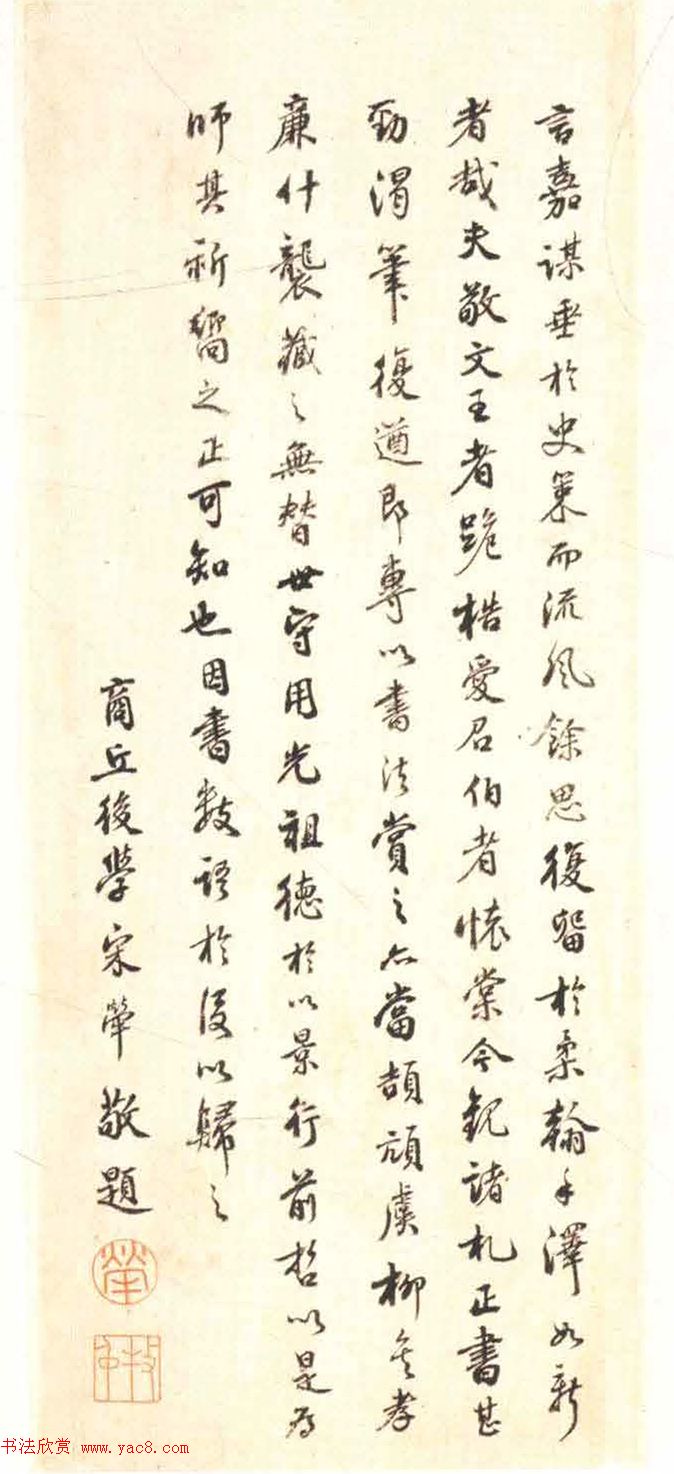 言嘉謀垂於史策而流風餘思復留於柔翰手澤如新
者哉夫敬文王者跪梏愛召伯者懷棠今觀諸札正書甚
勁渴筆復遒即專以書法賞之亦當頡頏虞柳矣孝
廉什襲藏之無替世守用光祖德於以景行前哲以是為
師其祈嚮之正可知也因書數語於後以歸之
商丘後學宋犖敬題
犖
书法欣赏 www.yac8.com